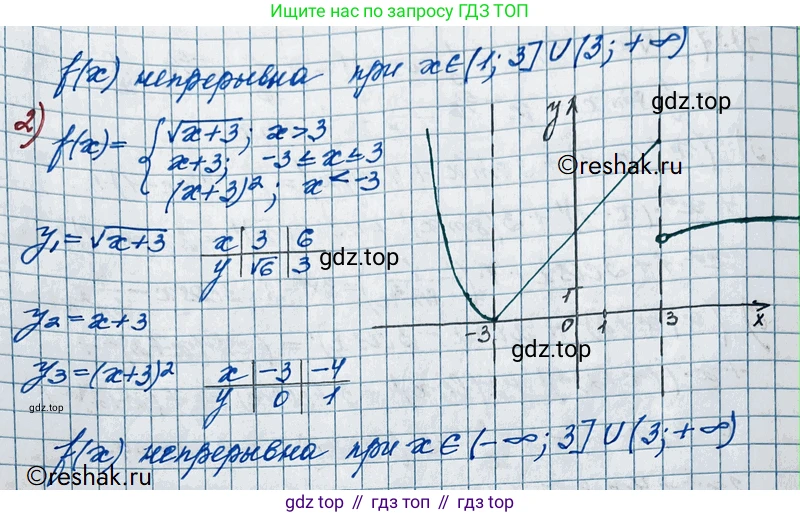 Ищите нас по запросу ГДЗ ТОП
f(x) непрерывна при x∈(1; 3]∪(3; +∞)
2) f(x)= { √x+3; x>3
x+3; -3≤x≤3
(x+3)²; x<-3
y
gdz.top
©reshak.ru
y₁=√x+3 x 3 6
y √6 3
gdz.top
y₂=x+3
1
-3 0 1 3 x
gdz.top
y₃=(x+3)² x -3 -4
y 0 1
gdz.top
f(x) непрерывна при x∈(-∞; 3]∪(3; +∞)
©reshak.ru
gdz.top
gdz top // гдз топ // gdz.top